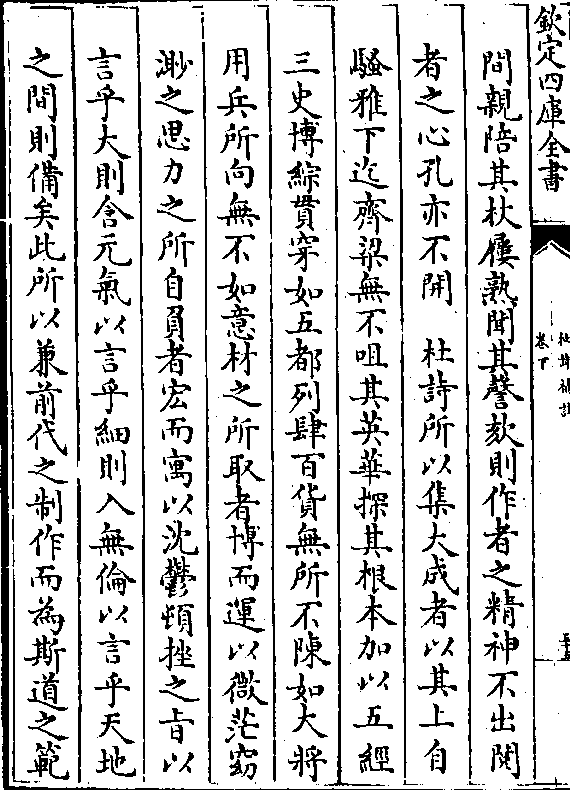 欽定四庫全書
杜詩補註
卷下
間親陪其杖屨熟聞其謦欬則作者之精神不出閱
者之心孔亦不開　杜詩所以集大成者以其上自
騷雅下迄齊梁無不咀其英華探其根本加以五經
三史博綜貫穿如五都列肆百貨無所不陳如大將
用兵所向無不如意材之所取者博而運以微茫窈
渺之思力之所自負者宏而寓以沈鬱頓挫之旨以
言乎大則含元氣以言乎細則入無倫以言乎天地
之間則備矣此所以兼前代之制作而為斯道之範